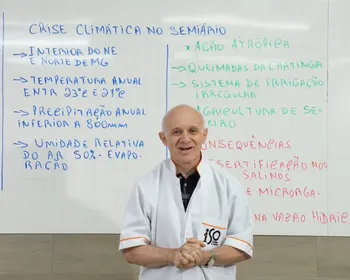 CRISE CLIMÁTICA NO SEMIÁRIO
→ INTERIOR DO NE
E NORTE DE MG
→ TEMPERATURA ANUAL
ENTR 23°C E 27°C
→ PRECIPITAÇÃO ANUAL
INFERIOR A 800mm
→ UMIDADE RELATIVA
DO AR 50% - EVAPO-
RAÇÃO
* AÇÃO ATRÓPICA
→ QUEIMADAS DA CAATINGA
→ SISTEMA DE IRRIGAÇÃO
IRREGULAR
AGRICULTURA DE SE-
EIRO
ONSEQUÊNCIAS
SERTIFICAÇÃO NOS
SALINOS
E MICRORGA-
NA VAZÃO HÍDRIC
ISO